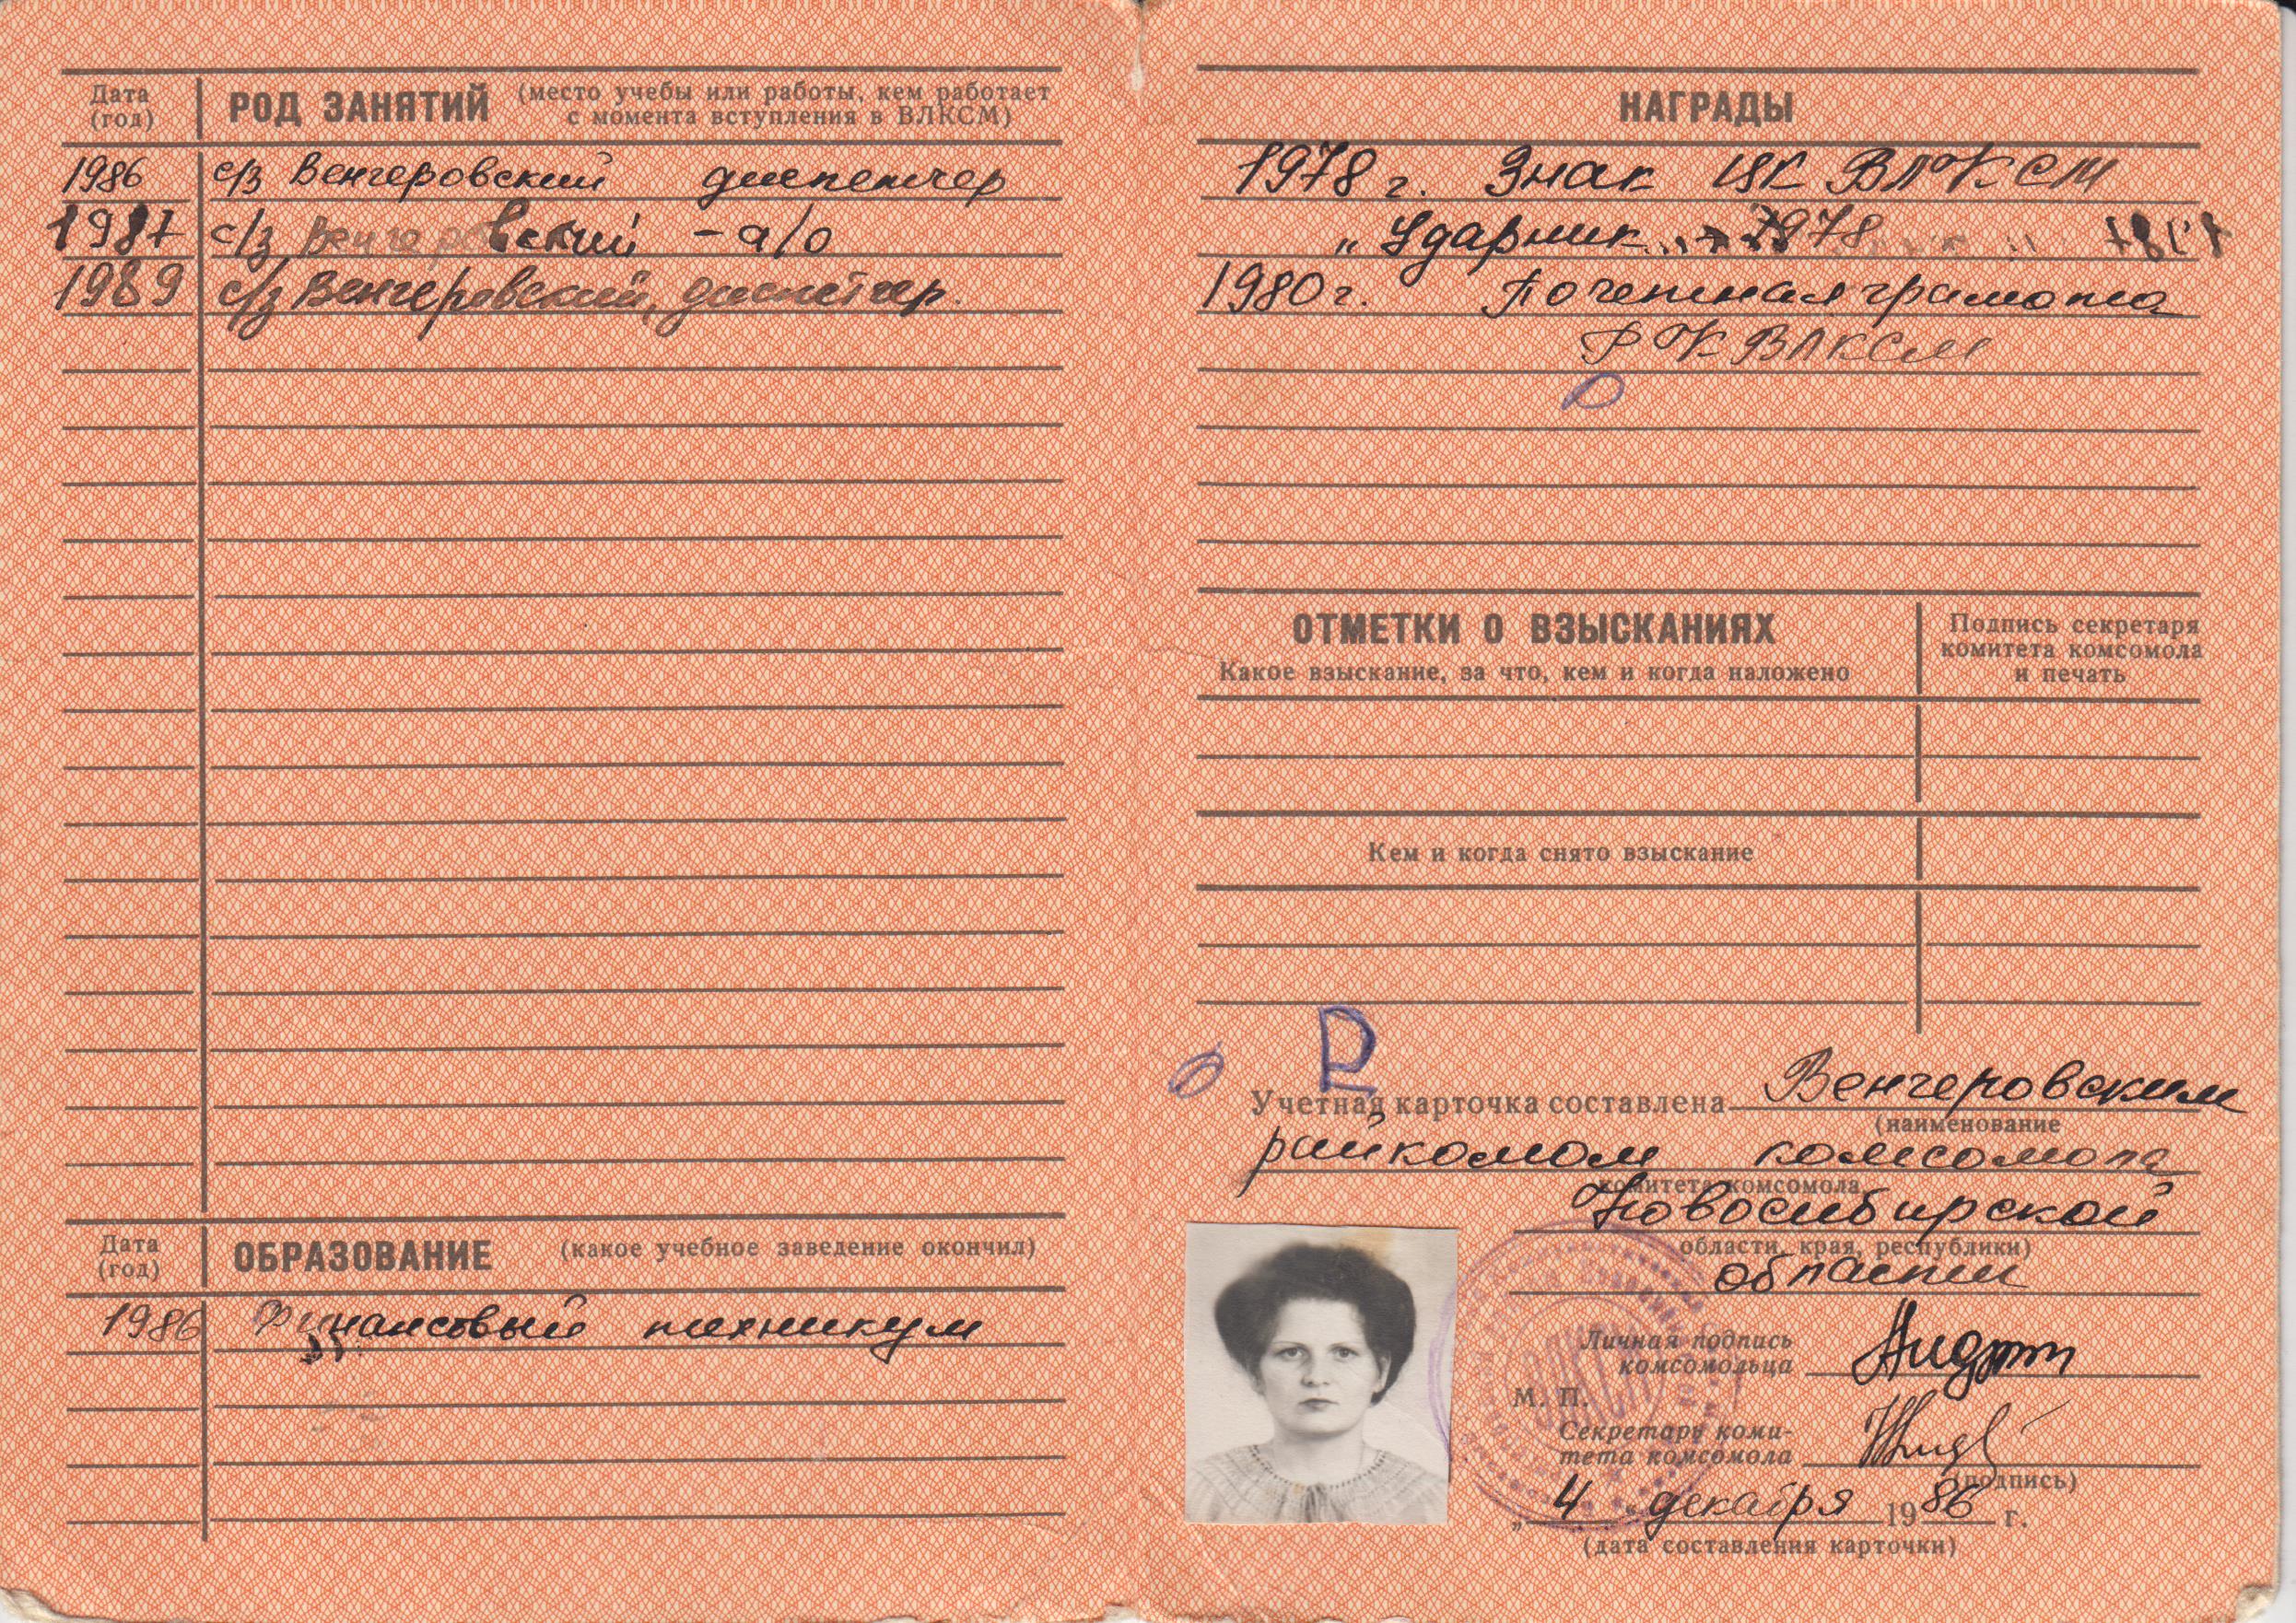 Дата
(год)
РОД ЗАНЯТИЙ (место учебы или работы, кем работает
с момента вступления в ВЛКСМ)
1986 с/з Венгеровский диспетчер
1987 с/з Венгеровский - а/о
1989 с/з Венгеровский, диспетчер.
Дата
(год)
ОБРАЗОВАНИЕ (какое учебное заведение окончил)
1986 Финансовый техникум
НАГРАДЫ
1978 г. Знак ЦК ВЛКСМ
„Ударник 1978
1980 г. Почетная грамота
РК ВЛКСМ
ОТМЕТКИ О ВЗЫСКАНИЯХ
Какое взыскание, за что, кем и когда наложено
Подпись секретаря
комитета комсомола
и печать
Кем и когда снято взыскание
Учетная карточка составлена Венгеровским
(наименование
райкомом комсомола
комитета комсомола,
Новосибирской
области, края, республики)
области
Личная подпись
комсомольца
М. П.
Секретарь коми-
тета комсомола
(подпись)
„ 4 " декабря 1986 г.
(дата составления карточки)